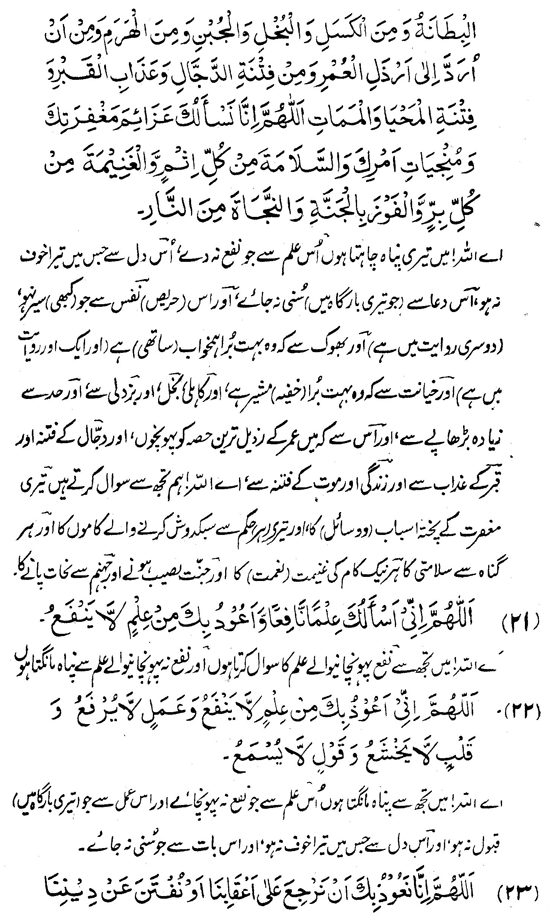 الْبِطَانَةُ وَمِنَ الْكَسَلِ وَالْبُخْلِ وَالْجُبْنِ وَمِنَ الْهَرَمِ وَمِنْ اَنْ
اُرَدَّ اِلٰى اَرْذَلِ الْعُمُرِ وَمِنْ فِتْنَةِ الدَّجَّالِ وَعَذَابِ الْقَبْرِ وَ
فِتْنَةِ الْمَحْيَا وَالْمَمَاتِ اَللّٰهُمَّ اِنَّا نَسْأَلُكَ عَزَائِمَ مَغْفِرَتِكَ
وَمُنْجِيَاتِ اَمْرِكَ وَالسَّلَامَةَ مِنْ كُلِّ اِثْمٍ وَّالْغَنِيْمَةَ مِنْ
كُلِّ بِرٍّ وَّالْفَوْزَ بِالْجَنَّةِ وَالنَّجَاةَ مِنَ النَّارِ۔
اے اللہ! میں تیری پناہ چاہتا ہوں اُس علم سے جو نفع نہ دے، اُس دل سے جس میں تیرا خوف
نہ ہو، اُس دعا سے (جو تیری بارگاہ میں) سُنی نہ جائے، اور اس (حریص) نفس سے جو (کبھی) سیر نہ ہو،
(دوسری روایت میں ہے) اور بھوک سے کہ وہ بہت بُرا ہمخواب (ساتھی) ہے (اور ایک اور روایت
میں ہے) اور خیانت سے کہ وہ بہت بُرا (خفیہ) مشیر ہے، اور کاہلی، بخل، اور بزدلی سے، اور حد سے
زیادہ بڑھاپے سے، اور اس سے کہ میں عمر کے رذیل ترین حصہ کو پہونچوں، اور دجّال کے فتنہ اور
قبر کے عذاب سے اور زندگی اور موت کے فتنہ سے، اے اللہ! ہم تجھ سے سوال کرتے ہیں تیری
مغفرت کے پختہ اسباب (ووسائل) کا، اور تیری ہر حکم سے سبکدوش کرنے والے کاموں کا اور ہر
گناہ سے سلامتی کا، ہر نیک کام کی غنیمت (نعمت) کا اور جنّت نصیب ہونے اور جہنم سے نجات پانے کا۔
(۲۱) اَللّٰهُمَّ اِنِّىْ اَسْأَلُكَ عِلْمًا نَّافِعًا وَّاَعُوْذُ بِكَ مِنْ عِلْمٍ لَّا يَنْفَعُ۔
اے اللہ! میں تجھ سے نفع پہونچانیوالے علم کا سوال کرتا ہوں اور نفع نہ پہونچانیوالے علم سے پناہ مانگتا ہوں
(۲۲)۔ اَللّٰهُمَّ اِنِّىْ اَعُوْذُ بِكَ مِنْ عِلْمٍ لَّا يَنْفَعُ وَعَمَلٍ لَّا يُرْفَعُ وَ
قَلْبٍ لَّا يَخْشَعُ وَقَوْلٍ لَّا يُسْمَعُ۔
اے اللہ! میں تجھ سے پناہ مانگتا ہوں اُس علم سے جو نفع نہ پہونچائے اور اس عمل سے جو (تیری بارگاہ میں)
قبول نہ ہو، اور اس دل سے جس میں تیرا خوف نہ ہو، اور اس بات سے جو سُنی نہ جائے۔
(۲۳) اَللّٰهُمَّ اِنَّا نَعُوْذُ بِكَ اَنْ نَرْجِعَ عَلٰى اَعْقَابِنَا اَوْ نُفْتَنَ عَنْ دِيْنِنَا